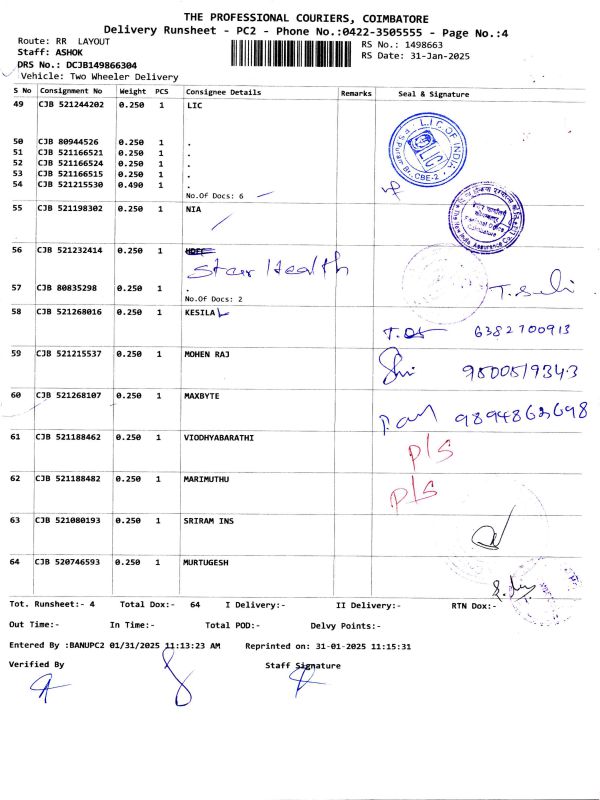 THE PROFESSIONAL COURIERS, COIMBATORE
Delivery Runsheet - PC2 - Phone No.:0422-3505555 - Page No.:4
Route: RR LAYOUT
Staff: ASHOK
DRS No.: DCJB149866304
Vehicle: Two Wheeler Delivery
RS No.: 1498663
RS Date: 31-Jan-2025
S No Consignment No Weight PCS Consignee Details Remarks Seal & Signature
49 CJB 521244202 0.250 1 LIC
50 CJB 80944526 0.250 1 .
51 CJB 521166521 0.250 1 .
52 CJB 521166524 0.250 1 .
53 CJB 521166515 0.250 1 .
54 CJB 521215530 0.490 1 .
No.Of Docs: 6
L.I.C OF INDIA
CBE-2
55 CJB 521198302 0.250 1 NIA
56 CJB 521232414 0.250 1 HDFC
Star Health
57 CJB 80835298 0.250 1 .
No.Of Docs: 2
58 CJB 521268016 0.250 1 KESILA
6382700913
59 CJB 521215537 0.250 1 MOHEN RAJ
9500519343
60 CJB 521268107 0.250 1 MAXBYTE
9894863698
61 CJB 521188462 0.250 1 VIODHYABARATHI
P/S
62 CJB 521188482 0.250 1 MARIMUTHU
P/S
63 CJB 521080193 0.250 1 SRIRAM INS
64 CJB 520746593 0.250 1 MURTUGESH
Tot. Runsheet:- 4 Total Dox:- 64 I Delivery:- II Delivery:- RTN Dox:-
Out Time:- In Time:- Total POD:- Delvy Points:-
Entered By :BANUPC2 01/31/2025 11:13:23 AM Reprinted on: 31-01-2025 11:15:31
Verified By Staff Signature